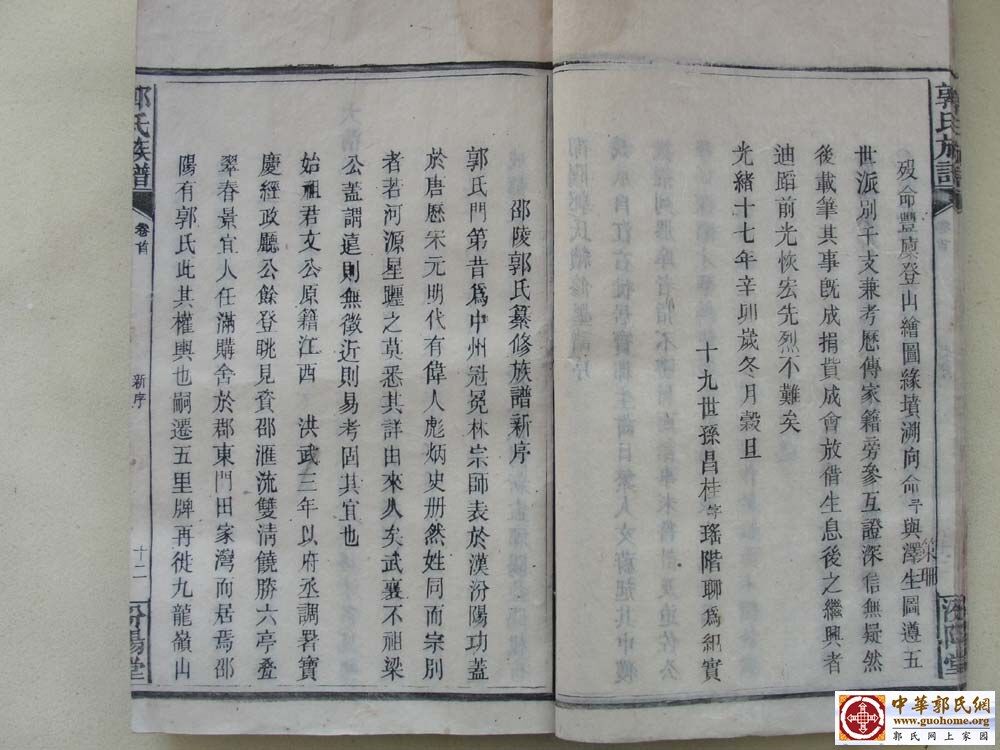 郭氏族譜
卷首
汾陽堂
歿命豐廩登山繪圖緣墳溯向命予與澤生圖遵五
築珊
世派別干支兼考歷傳家籍旁參互證深信無疑然
後載筆其事旣成捐貲成會放借生息後之繼興者
迪蹈前光恢宏先烈不難矣
光緒十七年辛卯歲冬月穀旦
十九世孫昌桂字瑤階聊爲紀實
邵陵郭氏纂修族譜新序
郭氏門第昔爲中州冠冕林宗師表於漢汾陽功蓋
於唐歷宋元明代有偉人彪炳史册然姓同而宗別
者若河源星躔之莫悉其詳由來久矣武襄不祖梁
公蓋謂遠則無徵近則易考固其宜也
始祖君文公原籍江西 洪武三年以府丞調署寶
慶經政廳公餘登眺見資邵滙流雙清饒勝六亭叠
翠春景宜人任滿購舍於郡東門田家灣而居焉邵
陽有郭氏此其權輿也嗣遷五里牌再徙九龍嶺山
郭氏族譜
卷首
新序
十二
汾陽堂
中華郭氏網
www.guohome.org
郭氏网上家园